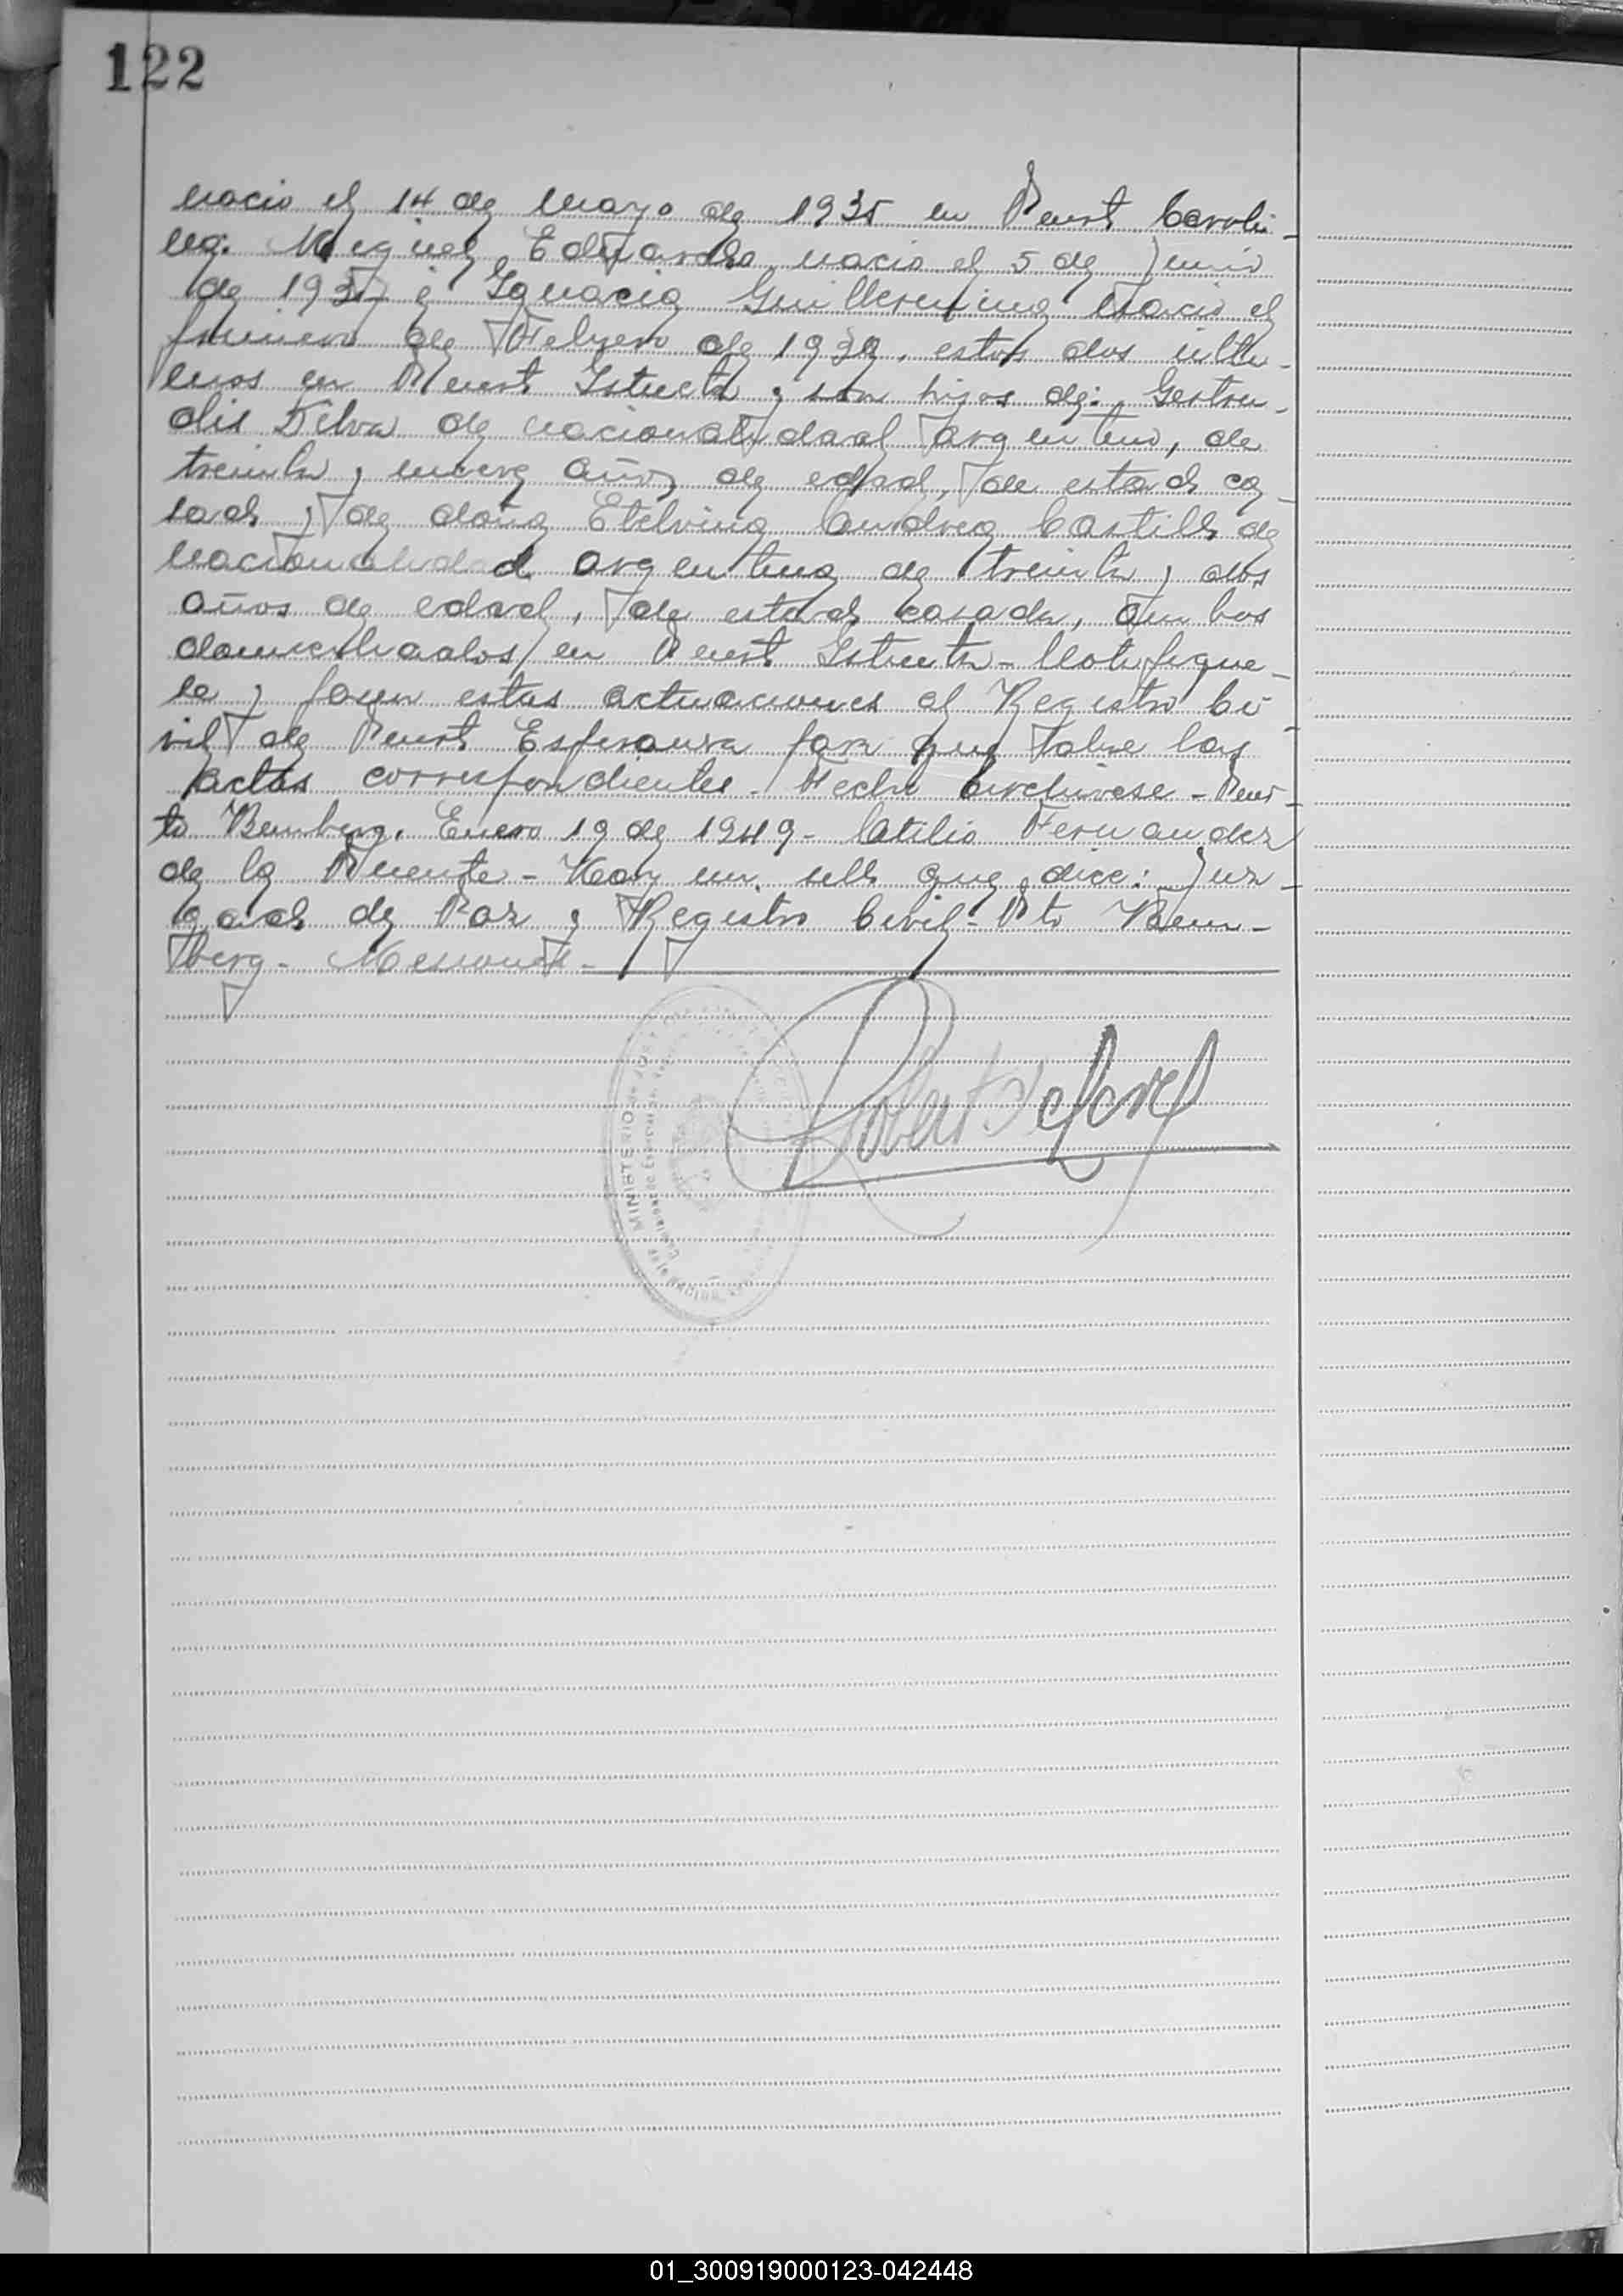 122
nacio el 14 de Mayo de 1935 en Puerto Caroli-
na. Miguel Eduardo, nacio el 5 de Junio
de 1937 e Ignacia Guillermina nacio el
primero de Febrero de 1939, estos dos ulti-
mos en Puerto Istueta y son hijos de: Gertru-
dis Silva de nacionalidad argentino, de
treinta y nueve años de edad, de estado ca-
sado y de doña Etelvina Andrea Castillo de
nacionalidad argentina de treinta y dos
años de edad, de estado casada, ambos
domiciliados en Puerto Istueta - Notifique-
se y pasen estas actuaciones al Registro Ci-
vil de Puerto Esperanza para que labre las
actas correspondientes - Fecho Archivese - Puer-
to Bemberg, Enero 19 de 1949 - Atilio Fernandez
de la Puente - Hay un sello que dice: Juz-
gado de Paz y Registro Civil - Pto Bem-
berg - Misiones -
MINISTERIO DE
01_300919000123-042448